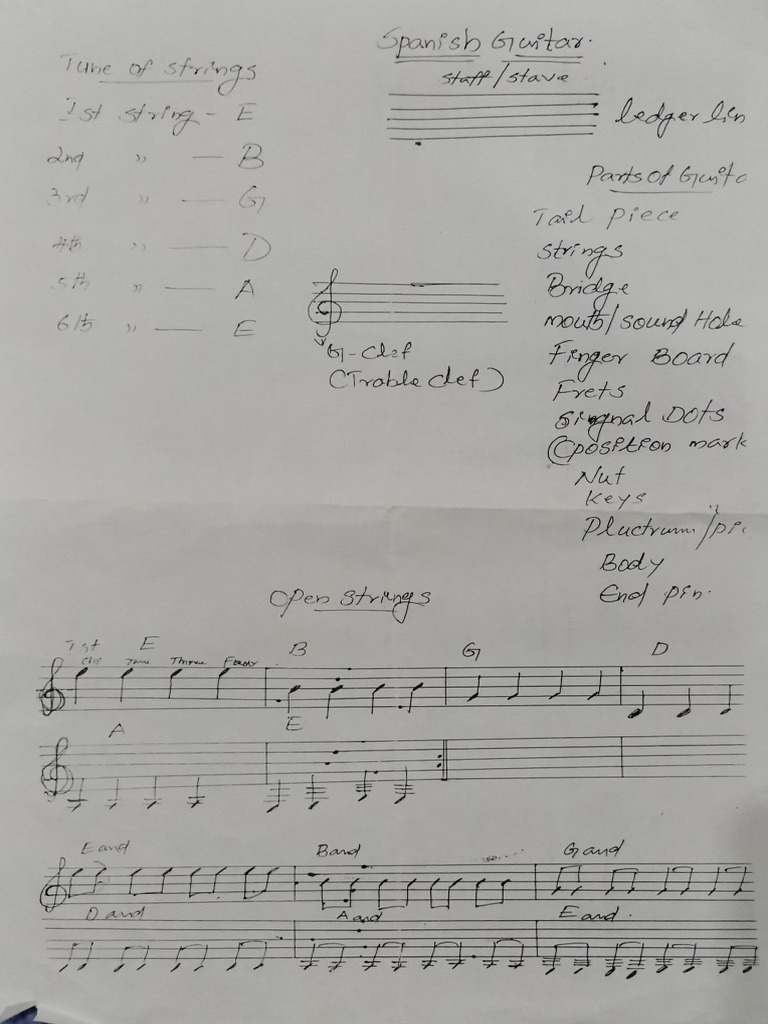 Spanish Guitar.
staff/stave
ledger lin
Tune of strings
1st string - E
2nd " — B
3rd " — G
4th " — D
5th " — A
6th " — E
G-Clef
(Trable Clef)
Parts of Guita
Tail piece
Strings
Bridge
mouth/sound Hole
Finger Board
Frets
Singnal Dots
(position mark
Nut
Keys
Pluctrum/pi
Body
End pin.
Open strings
1st E B G D
One Two Three Four
A E
E and B and G and
D and A and E and.